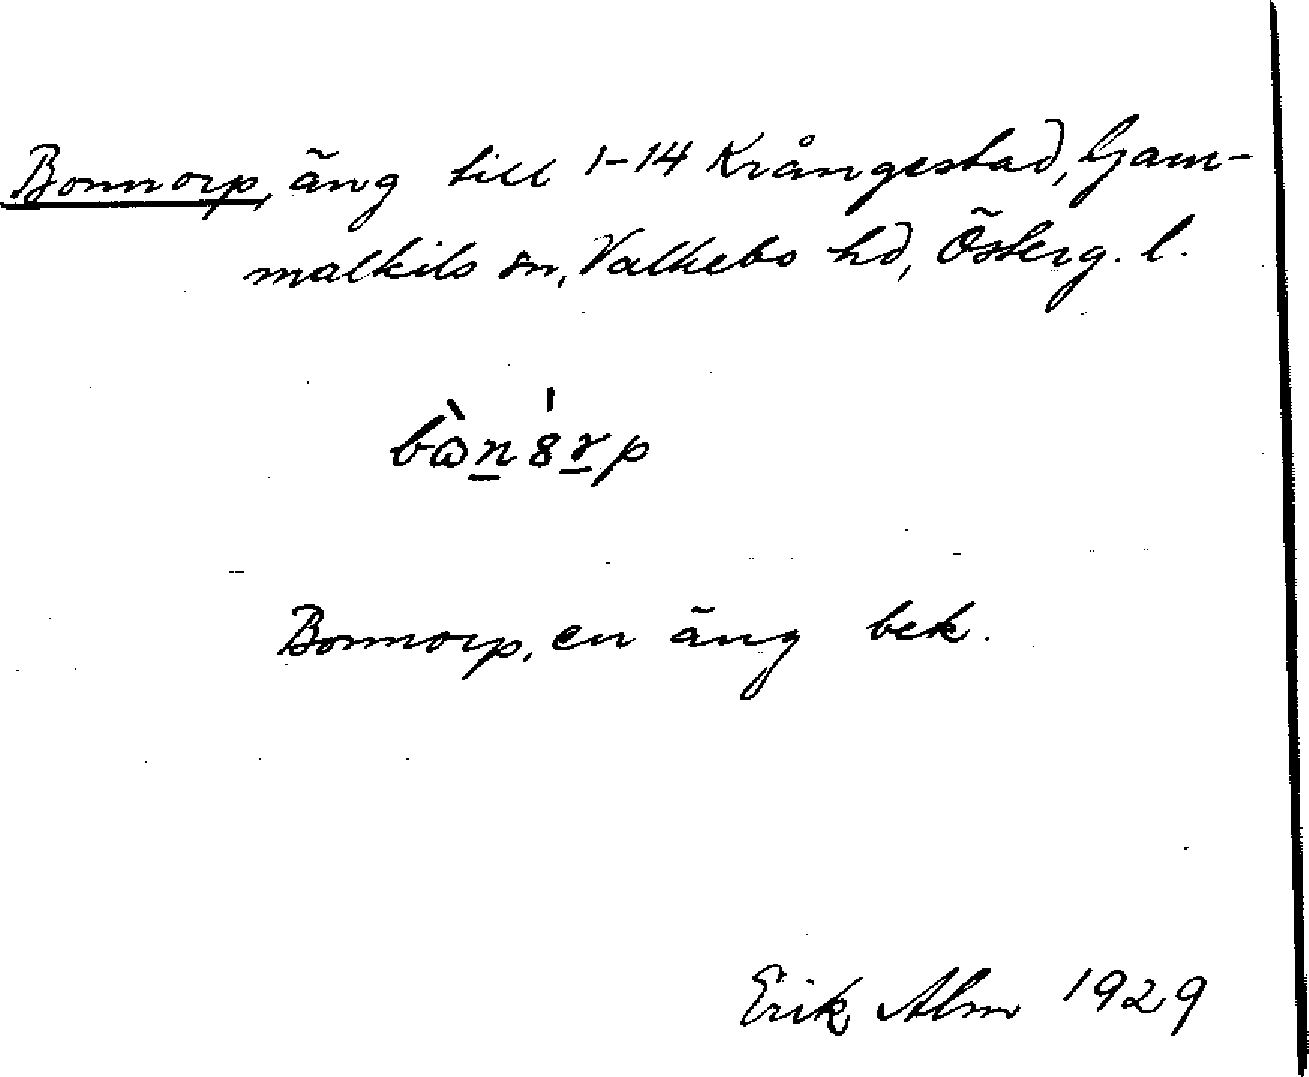 Bonnorp, äng till 1-14 Krångestad, Gam-
malkils sn, Valkebo hd, Österg. l.
bὼn8rp
Bonnorp, en äng bek.
Erik Alm 1929